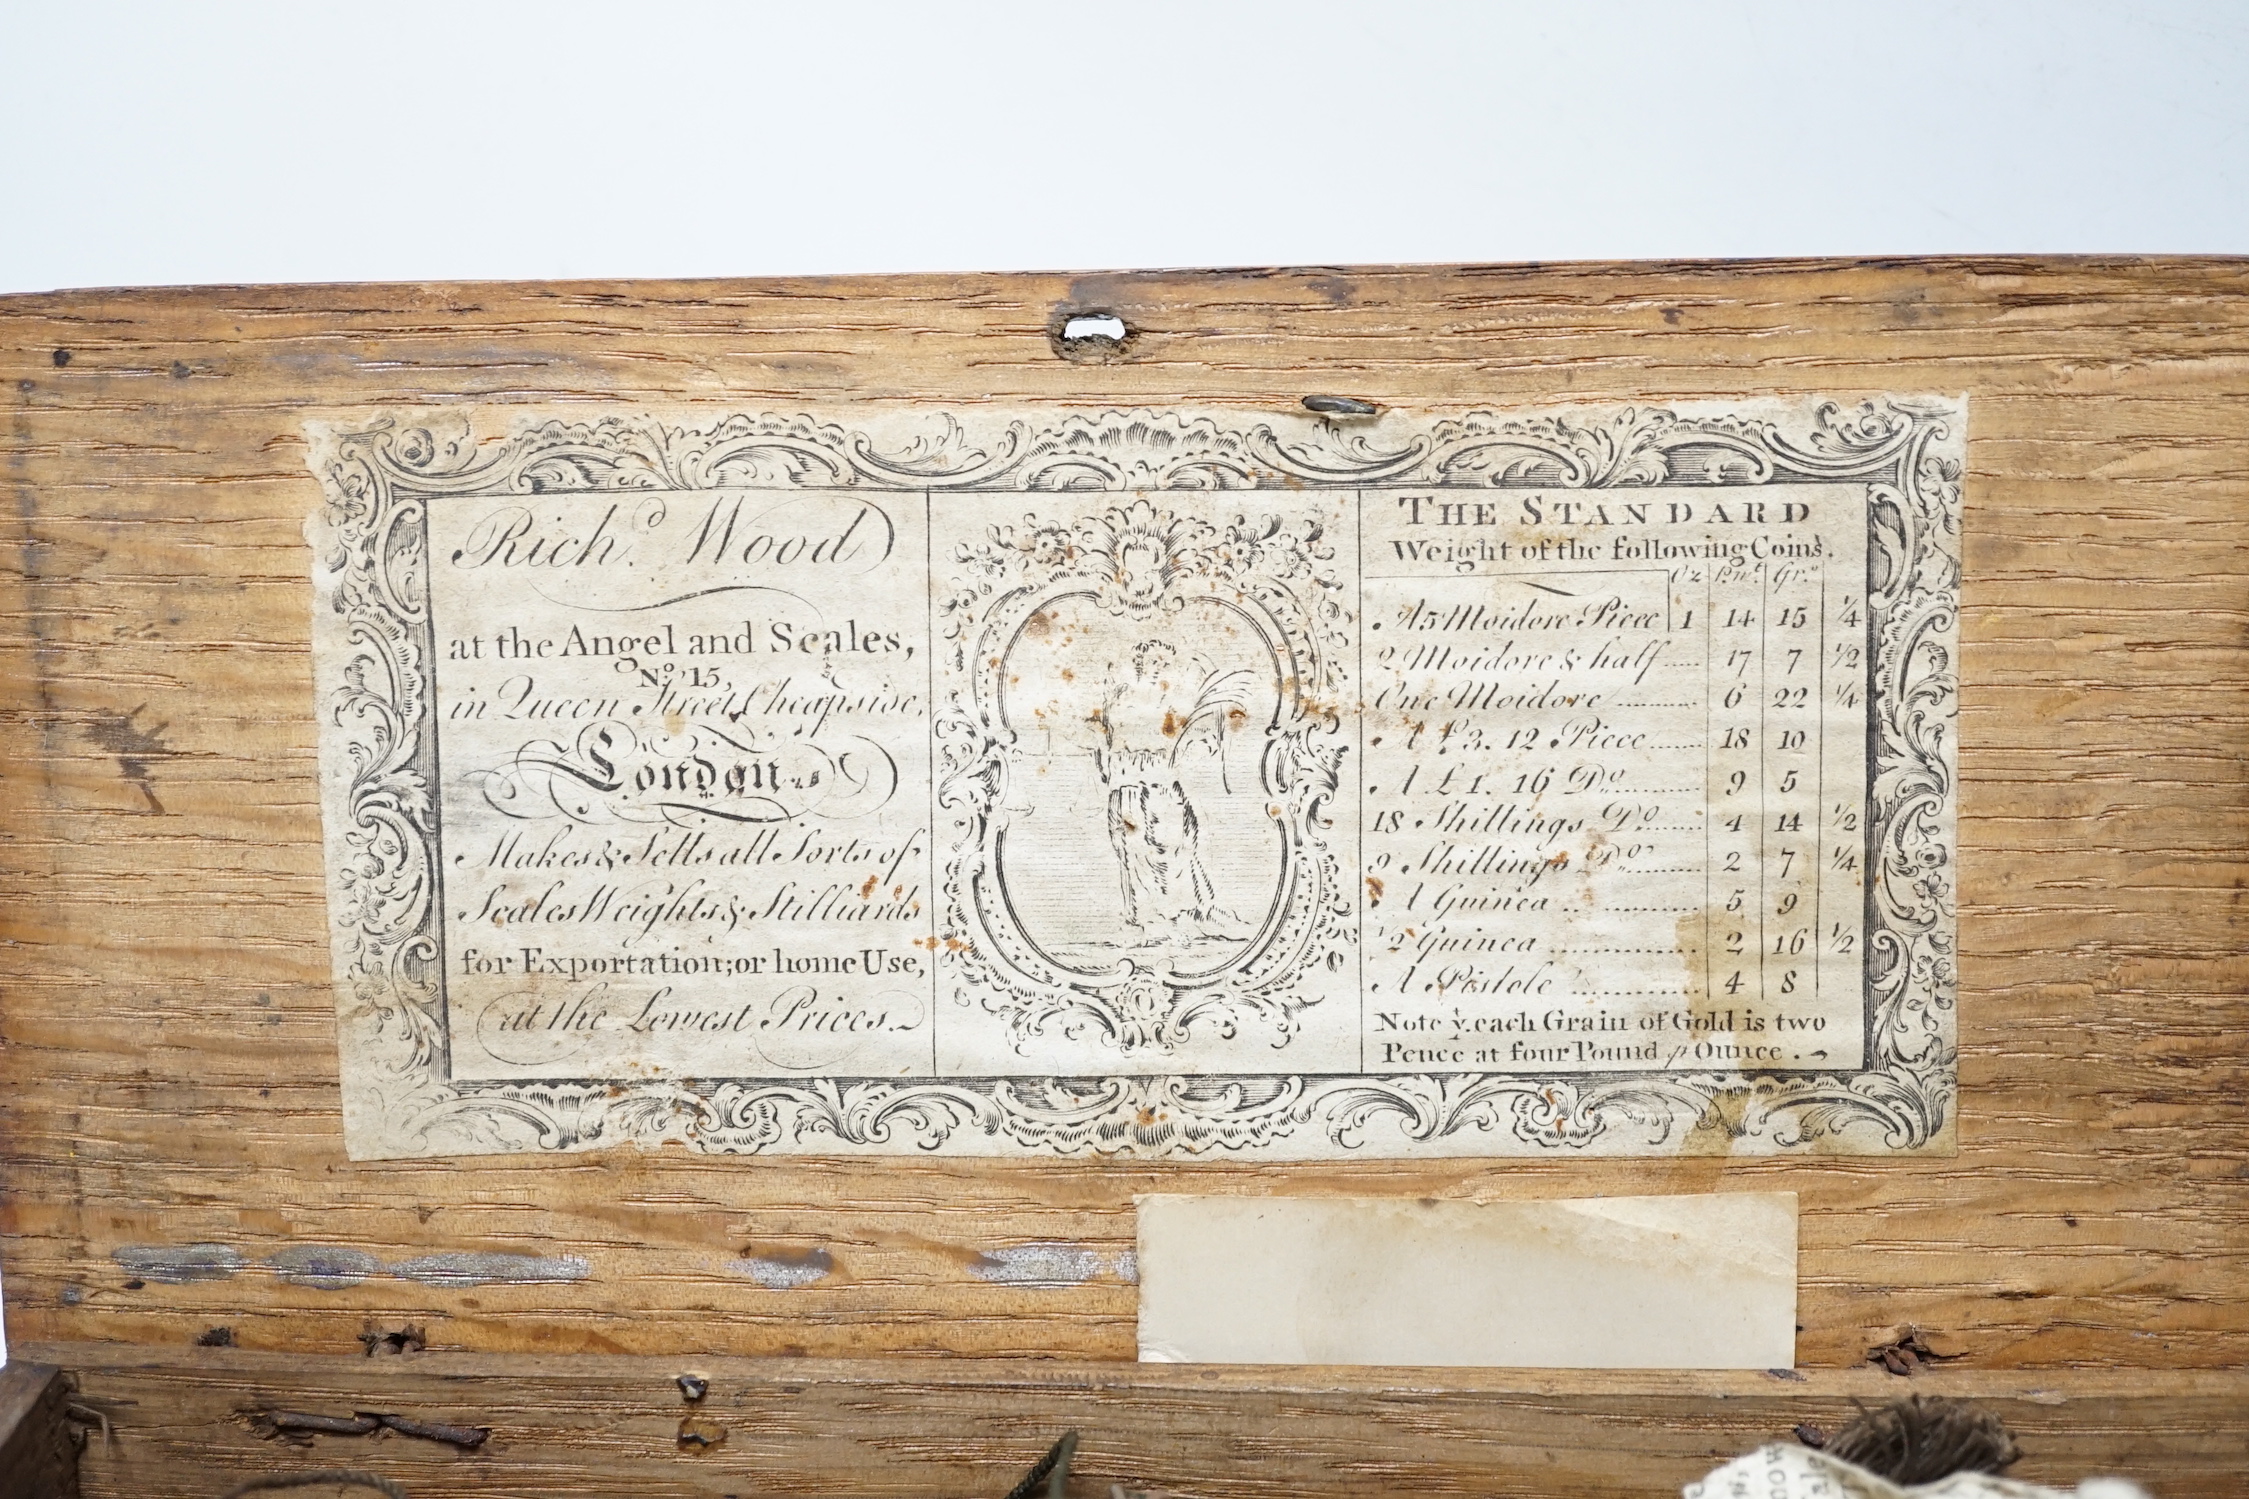 Rich.d Wood
at the Angel and Scales,
No. 15,
in Queen Street Cheapside,
London
Makes & Sells all Sorts of
Scales Weights & Stilliards
for Exportation; or home Use,
at the Lowest Prices.
THE STANDARD
Weight of the following Coins.
Oz Pwt. Grs.
A 5 Moidore Piece 1 14 15 1/4
2 Moidore & half ..... 17 7 1/2
One Moidore .......... 6 22 1/4
A £3. 12 Piece ....... 18 10
A £1. 16 Do. .......... 9 5
18 Shillings Do. ....... 4 14 1/2
9 Shillings Do. ......... 2 7 1/4
A Guinea ................ 5 9
1/2 Guinea ............... 2 16 1/2
A Pistole ............... 4 8
Note yt. each Grain of Gold is two
Pence at four Pound p Ounce.